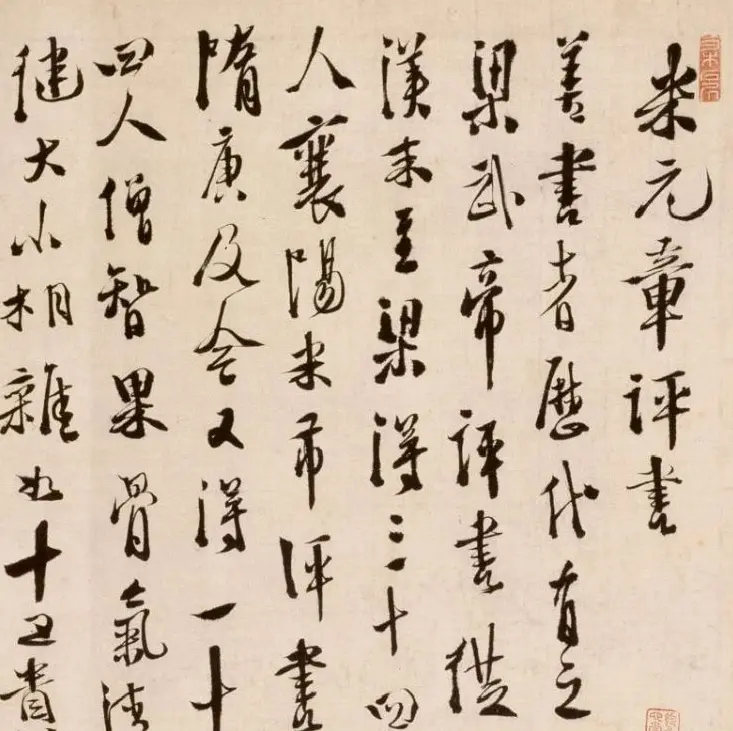 米元章評書
善書者歷代有之
梁武帝評書從
漢末至梁得三十四
人襄陽米芾評書
隋唐及今又得一十
四人僧智果骨氣清
健大小相雜如十五貴